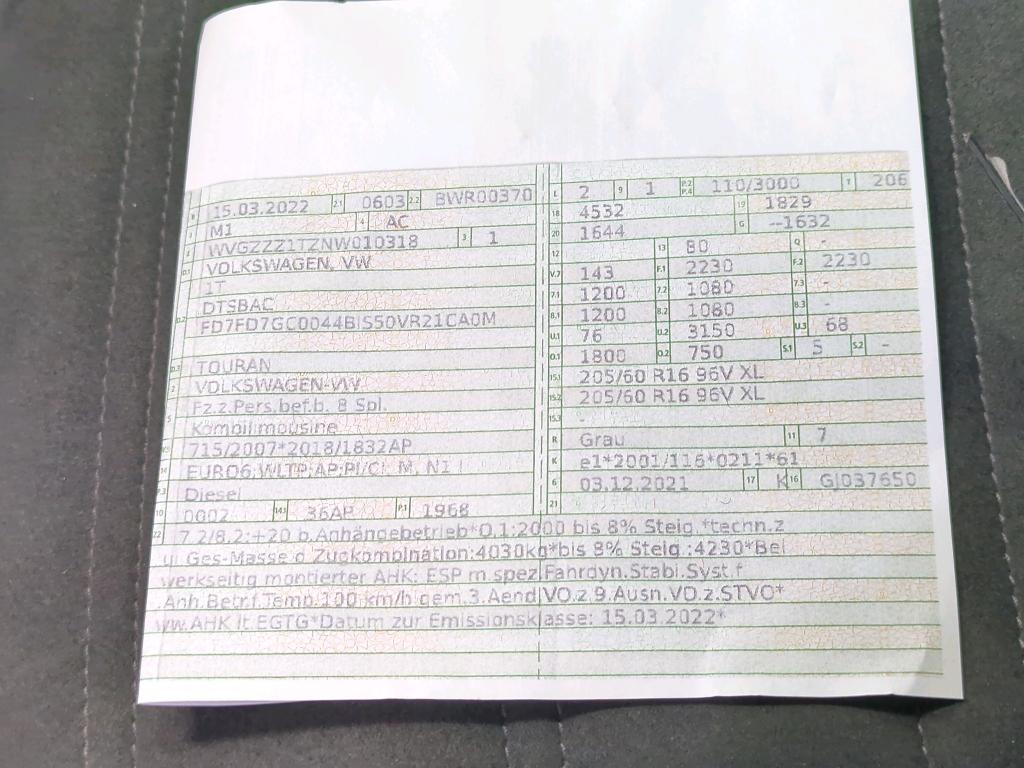 B 15.03.2022 2.1 0603 2.2 BWR00370
J M1 4 AC
E WVGZZZ1TZNW010318 3 1
D.1 VOLKSWAGEN, VW
1T
D.2 DTSBAC
FD7FD7GC0044BIS50VR21CA0M
D.3 TOURAN
2 VOLKSWAGEN-VW
5 Fz.z.Pers.bef.b. 8 Spl.
Kombilimousine
715/2007*2018/1832AP
14 EURO6;WLTP;AP;PI/CI M, N1 I
P.3 Diesel
10 0002 14.1 36AP P.1 1968
L 2 9 1 P.2 P.4 110/3000 T 206
18 4532 19 1829
20 1644 G --1632
12 13 80 Q -
V.7 143 F.1 2230 F.2 2230
7.1 1200 7.2 1080 7.3 -
8.1 1200 8.2 1080 8.3 -
U.1 76 U.2 3150 U.3 68
O.1 1800 O.2 750 S.1 5 S.2 -
15.1 205/60 R16 96V XL
15.2 205/60 R16 96V XL
15.3 -
R Grau 11 7
K e1*2001/116*0211*61
6 03.12.2021 17 K 16 GJ037650
21
22 7.2/8.2:+20 b.Anhängebetrieb*O.1:2000 bis 8% Steig.*techn.z
ul.Ges-Masse d Zugkombination:4030kg*bis 8% Steig.:4230*Bei
werkseitig montierter AHK: ESP m.spez.Fahrdyn.Stabi.Syst.f
.Anh.Betr.f.Temp.100 km/h gem.3.Aend.VO.z.9.Ausn.VO.z.STVO*
ww.AHK lt.EGTG*Datum zur Emissionsklasse: 15.03.2022*